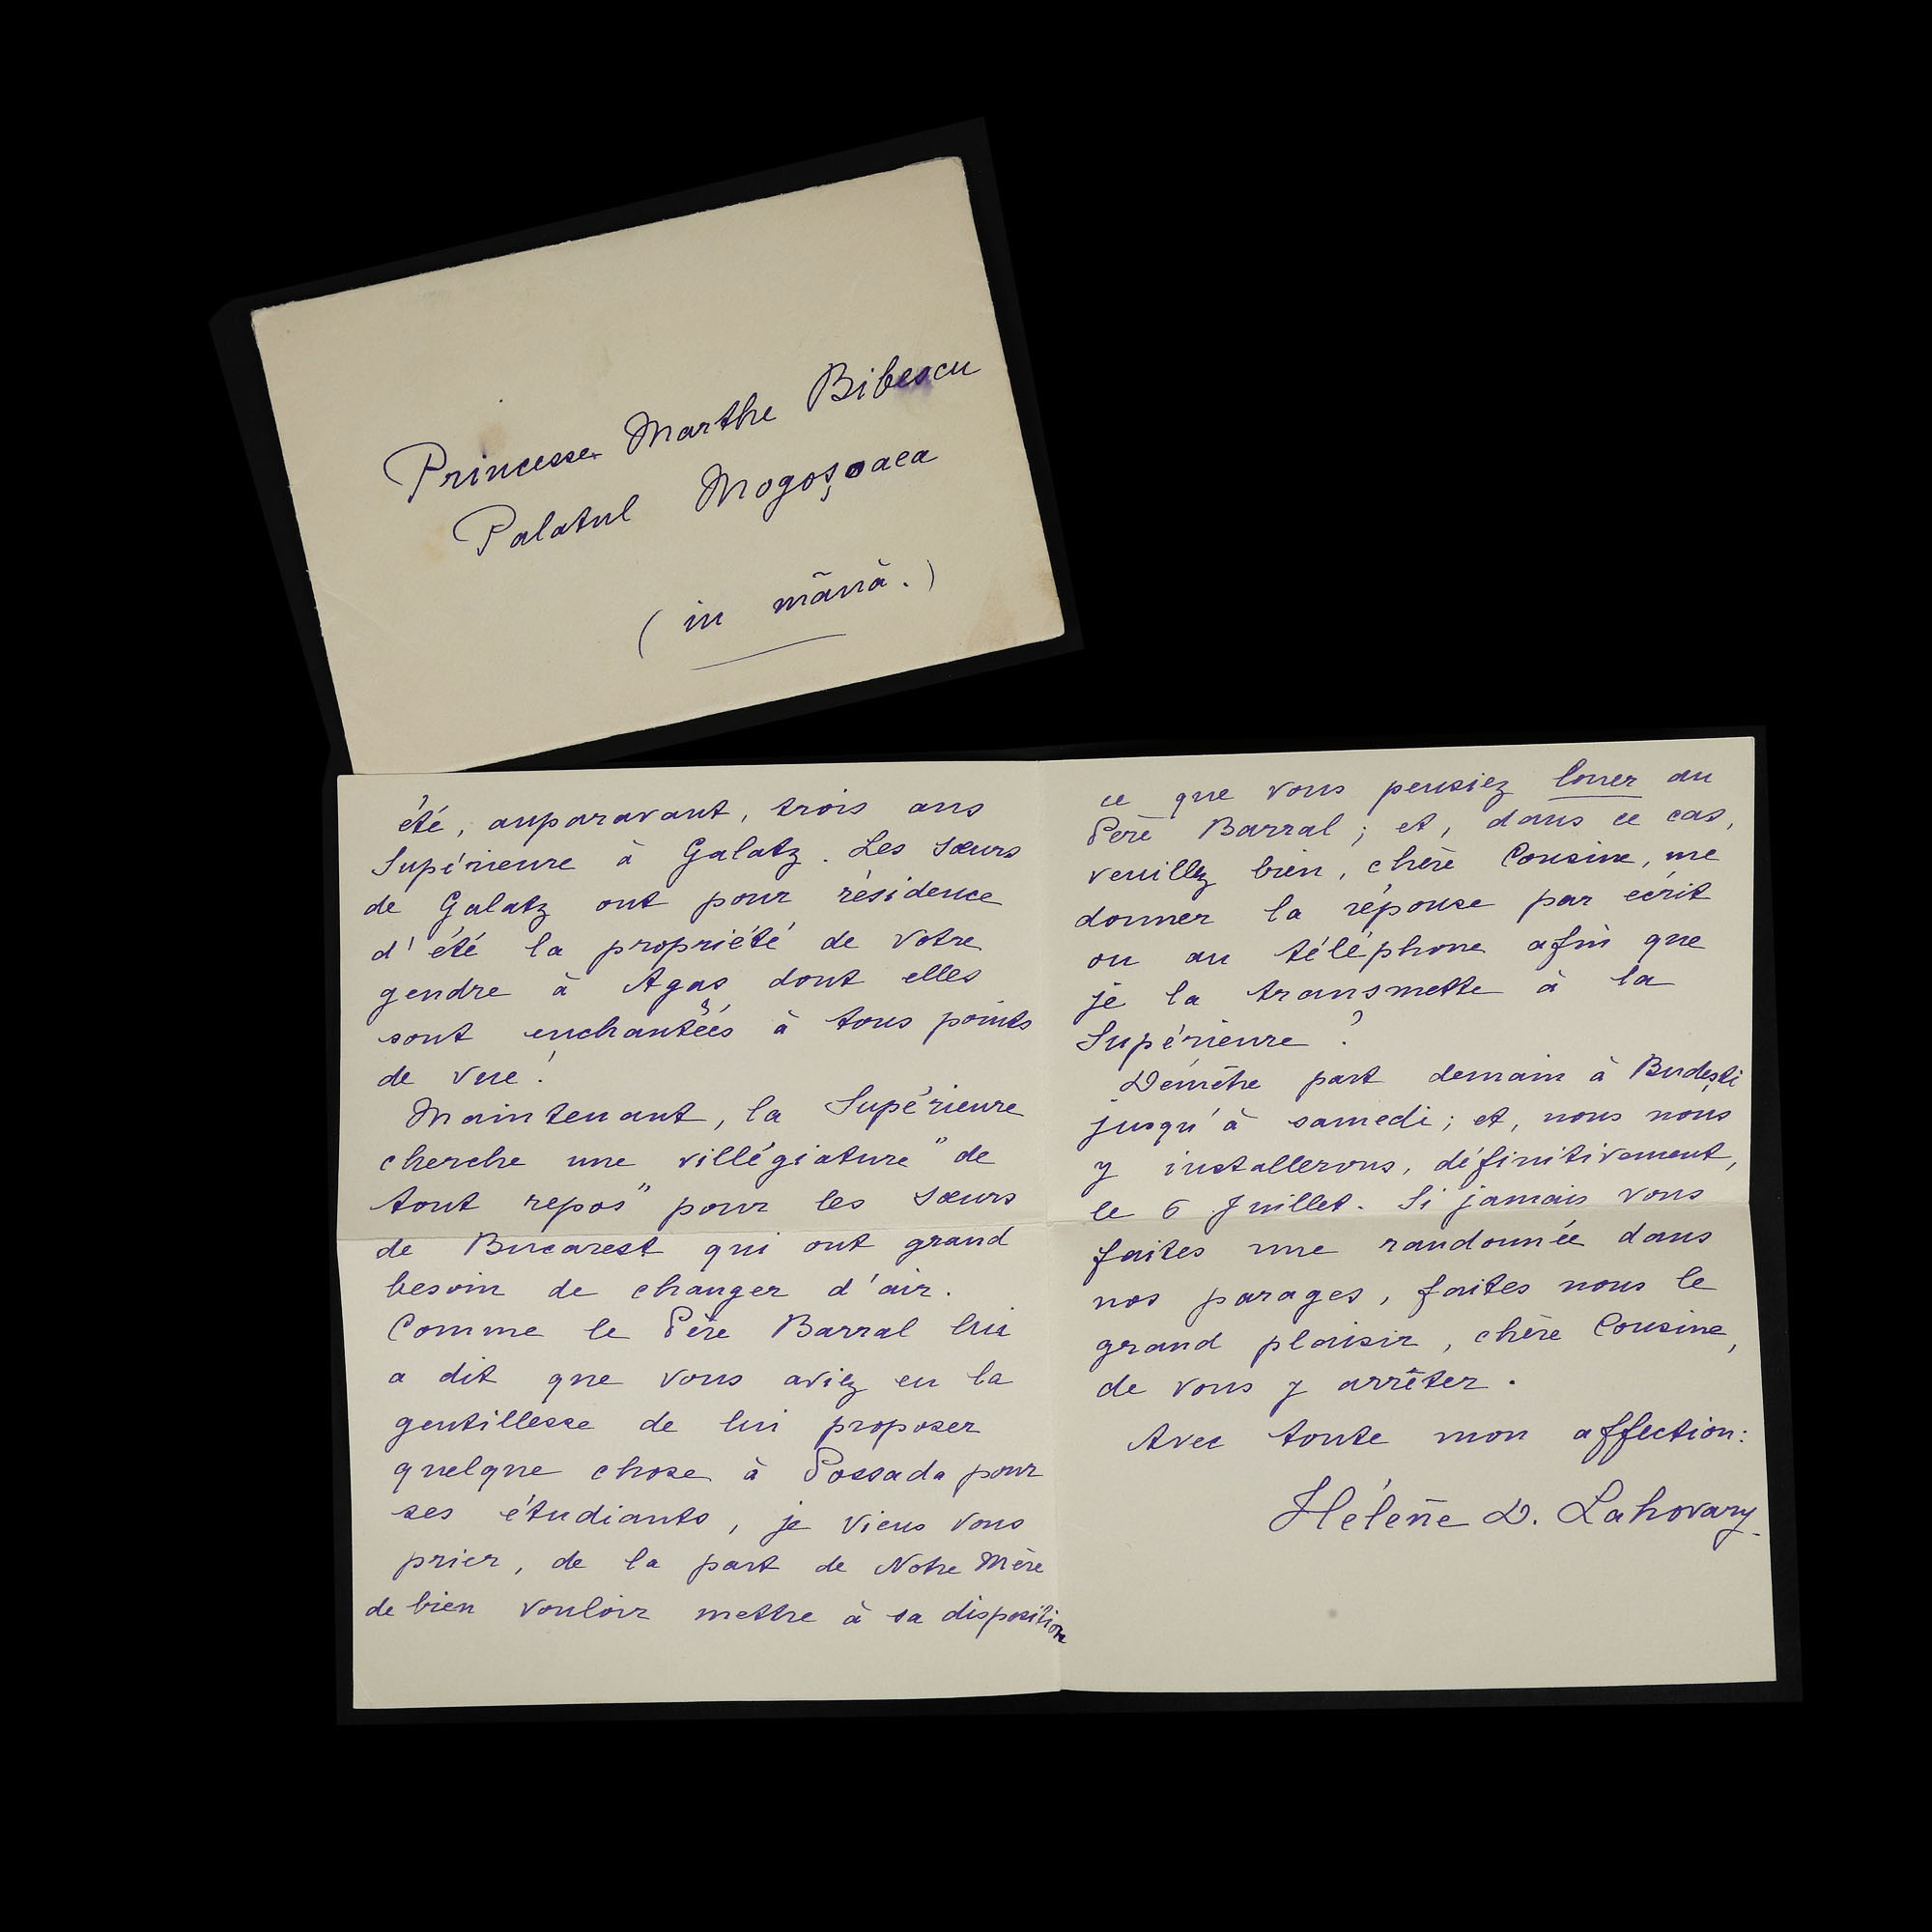 Princesse Marthe Bibescu
Palatul Mogoşoaea
(in mână.)
été, auparavant, trois ans
Supérieure à Galatz. Les sœurs
de Galatz ont pour résidence
d'été la propriété de votre
gendre à Agaş dont elles
sont enchantées à tous points
de vue!
Maintenant, la Supérieure
cherche une villégiature "de
tout repos" pour les sœurs
de Bucarest qui ont grand
besoin de changer d'air.
Comme le Père Barral lui
a dit que vous aviez eu la
gentillesse de lui proposer
quelque chose à Possada pour
ses étudiants, je viens vous
prier, de la part de Notre Mère
de bien vouloir mettre à sa disposition
ce que vous pensiez louer au
Père Barral; et, dans ce cas,
veuillez bien, chère Cousine, me
donner la réponse par écrit
ou au téléphone afin que
je la transmette à la
Supérieure?
Démètre part demain à Budeşti
jusqu'à samedi; et, nous nous
y installerons, définitivement,
le 6 Juillet. Si jamais vous
faites une randonnée dans
nos parages, faites nous le
grand plaisir, chère Cousine,
de vous y arrêter.
Avec toute mon affection:
Hélène D. Lahovary.